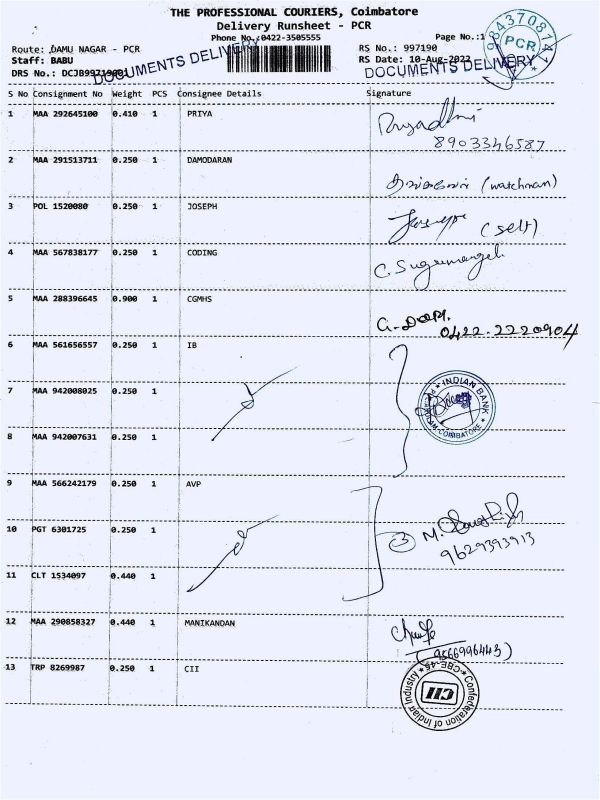 THE PROFESSIONAL COURIERS, Coimbatore
Delivery Runsheet - PCR
Phone No.:0422-3505555
Page No.:1
Route: DAMU NAGAR - PCR
RS No.: 997190
Staff: BABU
RS Date: 10-Aug-2022
DRS No.: DCJB99719001
DOCUMENTS DELIVERY
DOCUMENTS DELIVERY
984370814
PCR
S No Consignment No Weight PCS Consignee Details Signature
1 MAA 292645100 0.410 1 PRIYA
8903346587
2 MAA 291513711 0.250 1 DAMODARAN
(watchman)
3 POL 1520080 0.250 1 JOSEPH
(self)
4 MAA 567838177 0.250 1 CODING
5 MAA 288396645 0.900 1 CGMHS
0422-2220904
6 MAA 561656557 0.250 1 IB
7 MAA 942008025 0.250 1
INDIAN BANK
COIMBATORE
8 MAA 942007631 0.250 1
9 MAA 566242179 0.250 1 AVP
10 PGT 6301725 0.250 1
3
9629393913
11 CLT 1534097 0.440 1
12 MAA 290858327 0.440 1 MANIKANDAN
(9566996443)
13 TRP 8269987 0.250 1 CII
CBE-45
CII
Confederation of Indian Industry